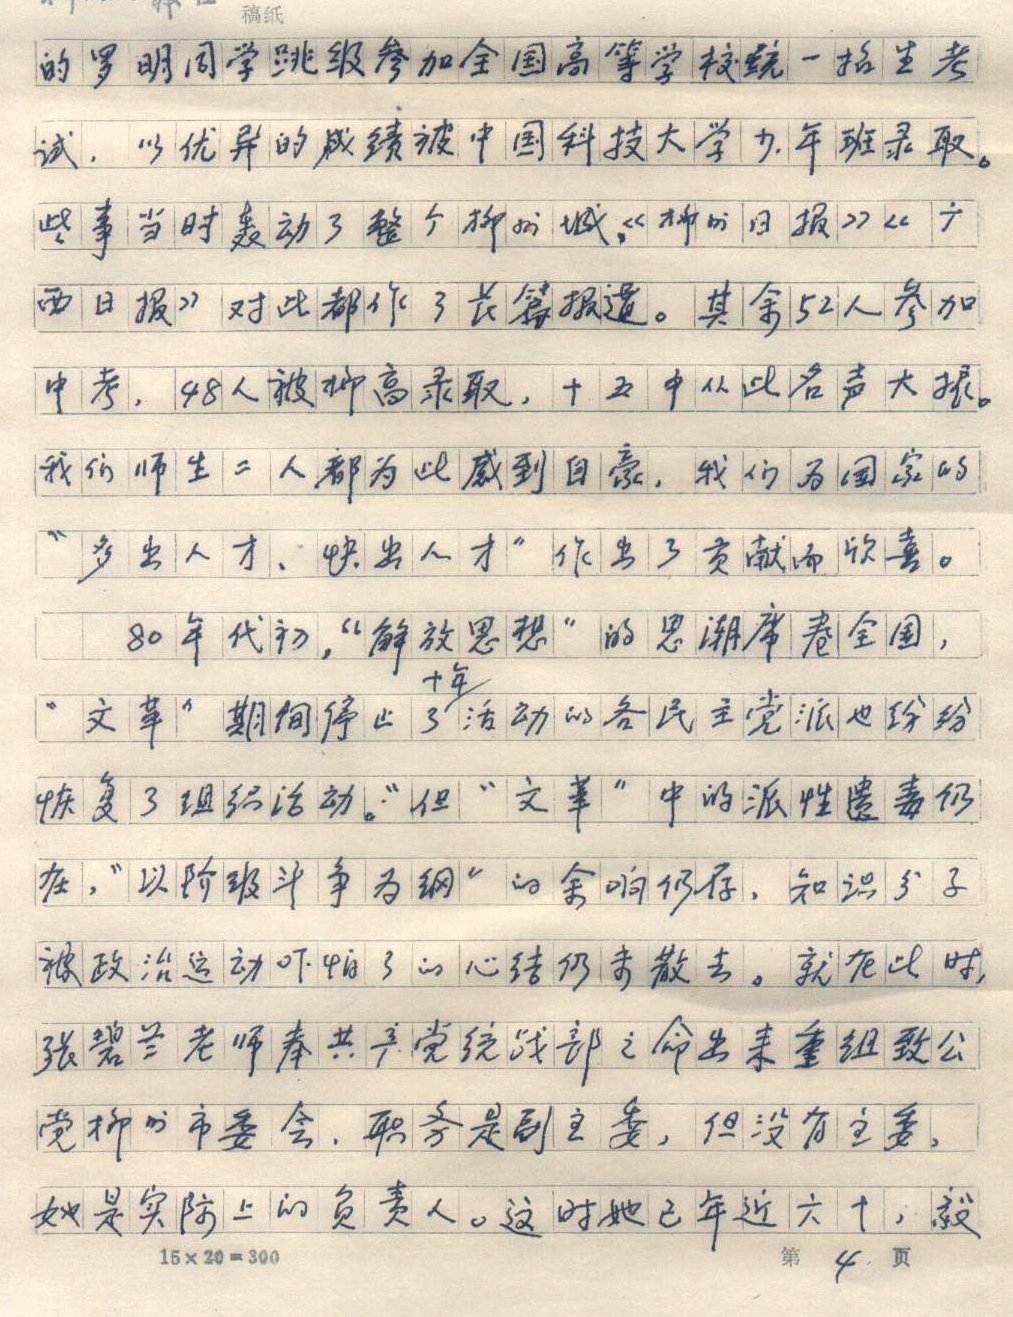 稿纸
的罗明同学跳级参加全国高等学校统一招生考
试，以优异的成绩被中国科技大学少年班录取。
些事当时轰动了整个柳州城，《柳州日报》《广
西日报》对此都作了长篇报道。其余52人参加
中考，48人被柳高录取，十五中从此名声大振。
我们师生二人都为此感到自豪，我们为国家的
“多出人才、快出人才”作出了贡献而欣喜。
80年代初，“解放思想”的思潮席卷全国，
十年
“文革”期间停止了活动的各民主党派也纷纷
恢复了组织活动。“但“文革”中的派性遗毒仍
在，“以阶级斗争为纲”的余响仍存，知识分子
被政治运动吓怕了的心结仍未散去。就在此时，
张碧兰老师奉共产党统战部之命出来重组致公
党柳州市委会，职务是副主委，但没有主委，
她是实际上的负责人。这时她已年近六十，毅
15×20=300 第 4 页